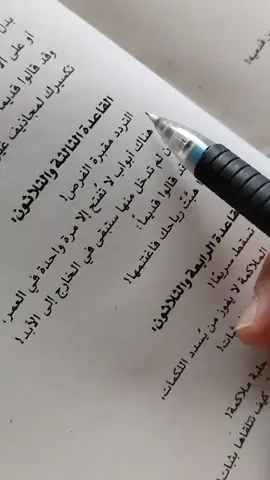 بدل
أو على
وقد قالوا قديماً
تكسيرك لمجاذيف غير
القاعدة الثالثة والثلاثون:
التردد مقبرة الفرص!
هناك أبواب لا تُفتح إلا مرة واحدة في العمر،
لم تدخل منها ستبقى في الخارج إلى الأبد!
قالوا قديماً:
هبّت رياحك فاغتنمها!
القاعدة الرابعة والثلاثون:
تسقط سريعاً!
الملاكمة لا يفوز من يُسدد اللكمات،
حلبة ملاكمة!
كيف تتلقاها بثبات!